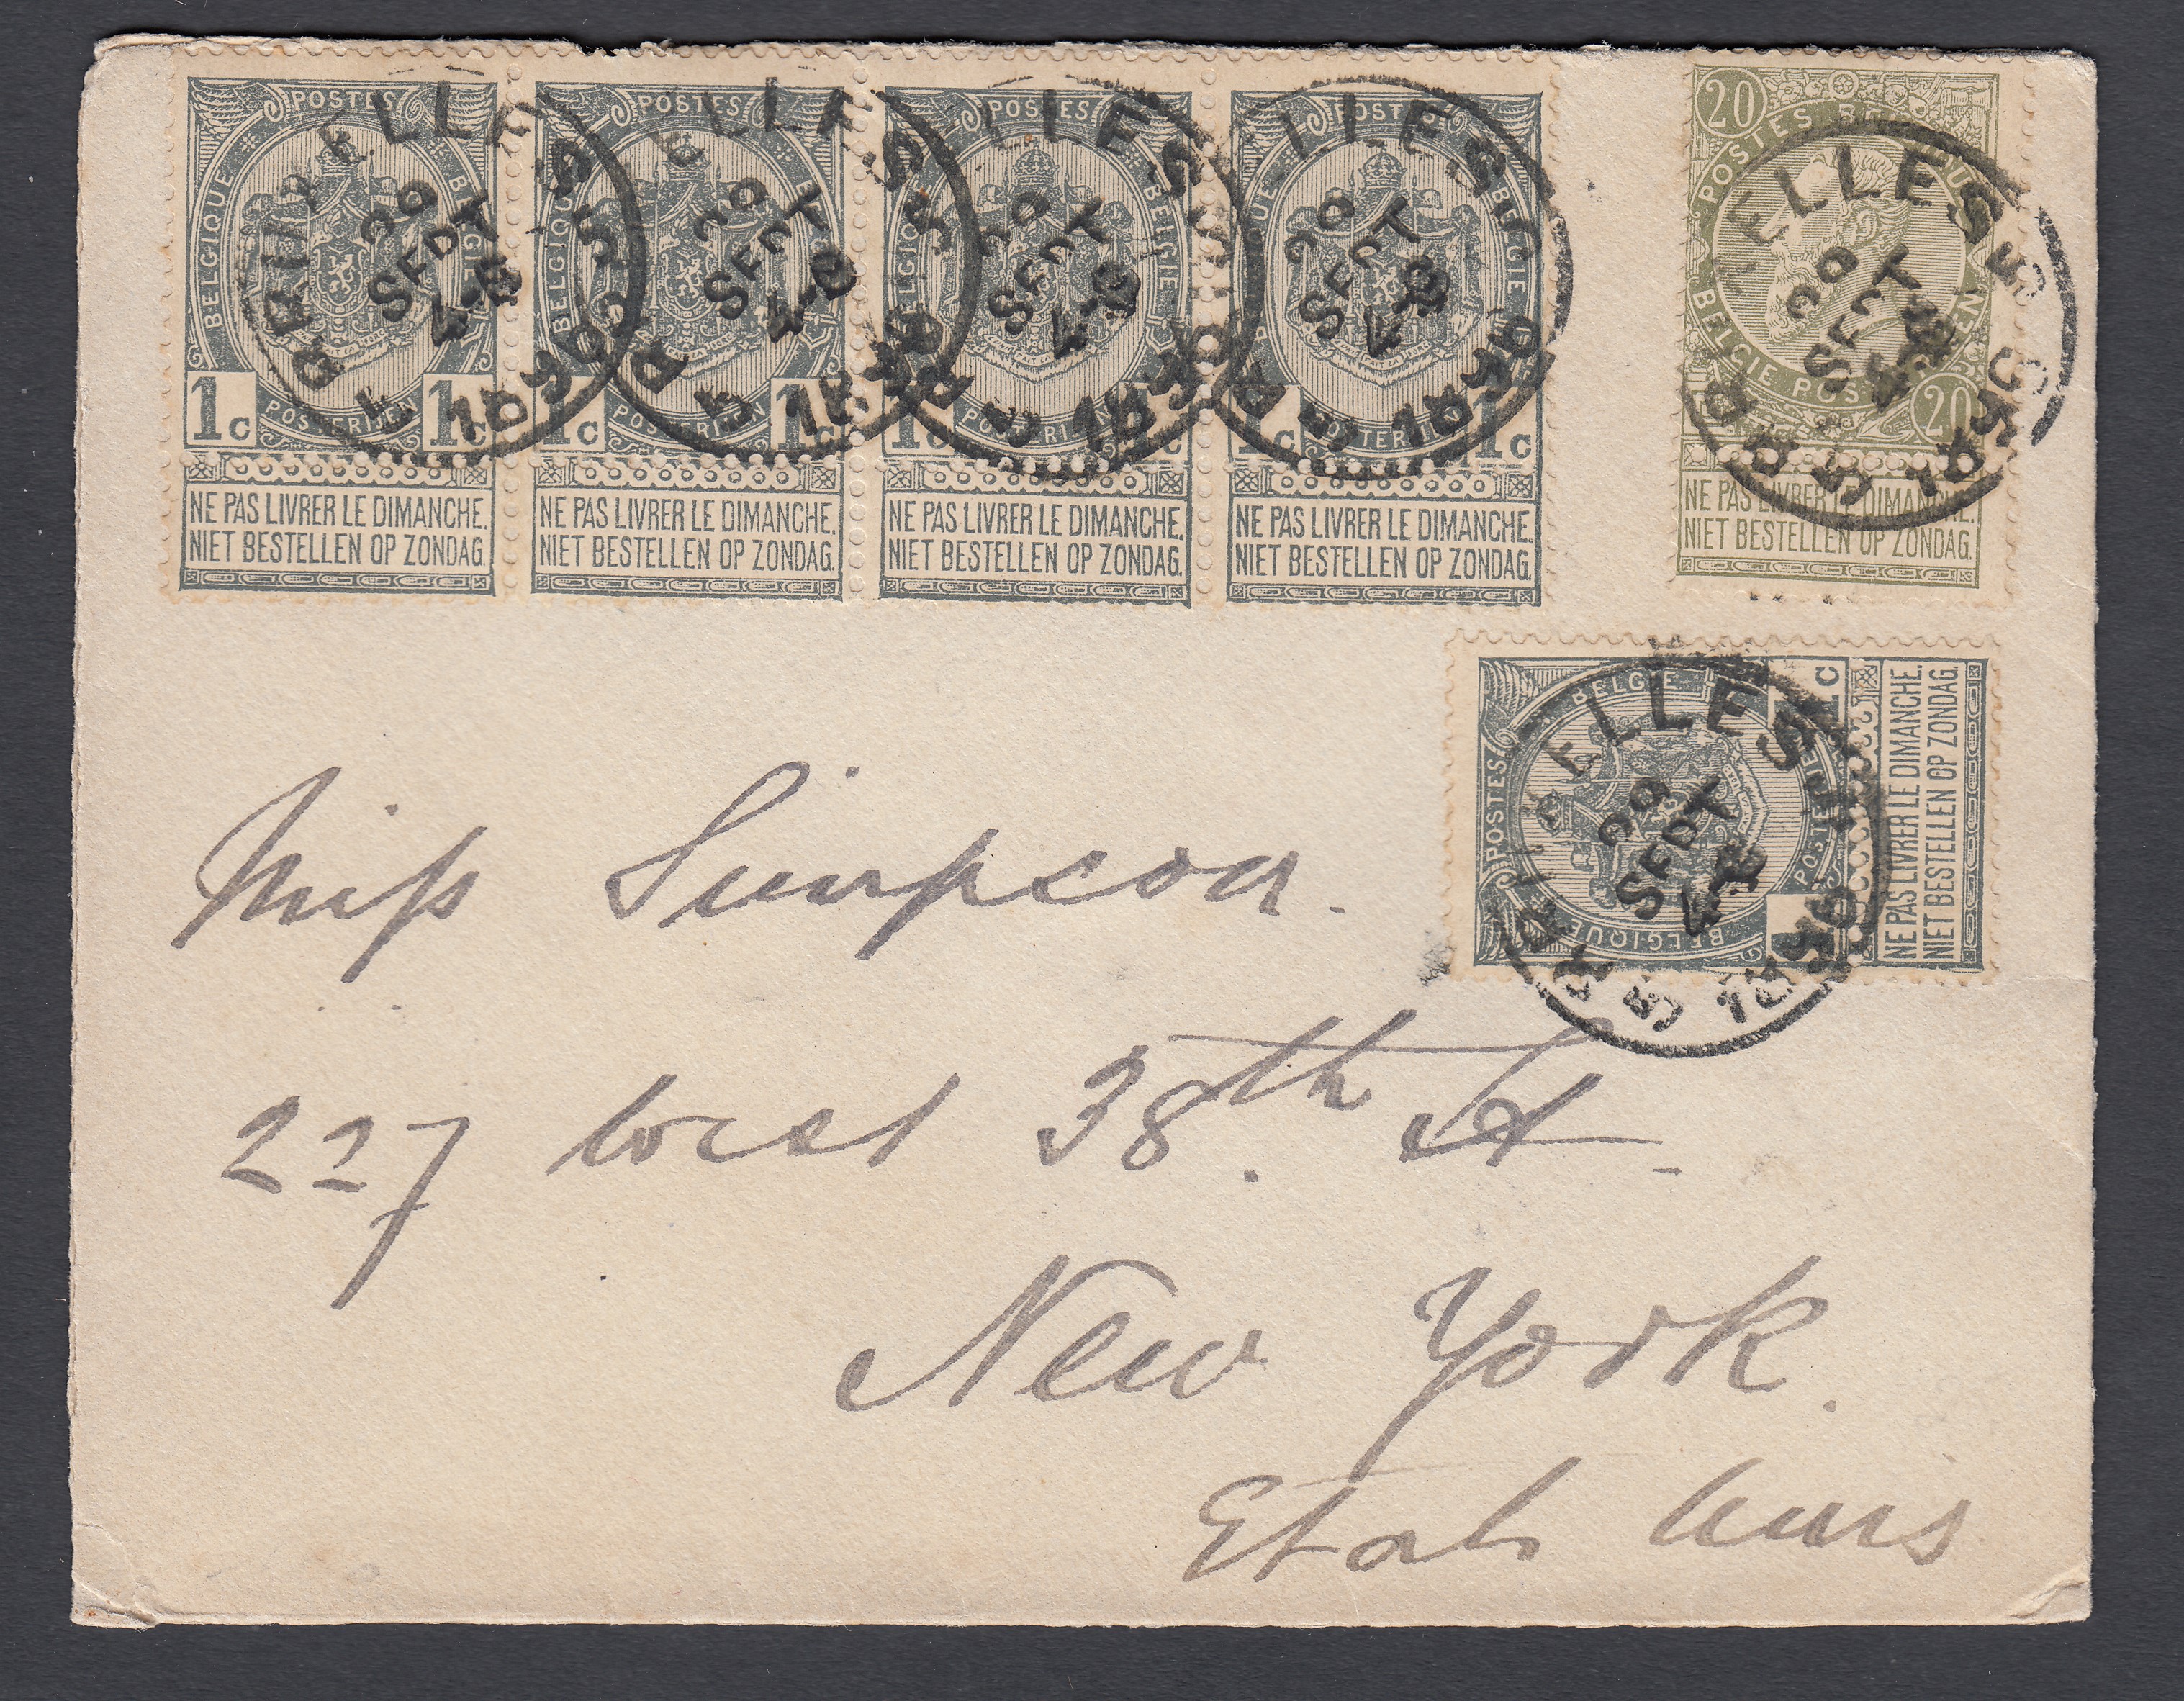 POSTES POSTES POSTES POSTES
BELGIQUE BELGIE BELGIQUE BELGIE BELGIQUE BELGIE BELGIQUE BELGIE
1c 1c 1c 1c 1c 1c 1c 1c
POSTERIJEN POSTERIJEN POSTERIJEN POSTERIJEN
NE PAS LIVRER LE DIMANCHE. NE PAS LIVRER LE DIMANCHE. NE PAS LIVRER LE DIMANCHE. NE PAS LIVRER LE DIMANCHE.
NIET BESTELLEN OP ZONDAG. NIET BESTELLEN OP ZONDAG. NIET BESTELLEN OP ZONDAG. NIET BESTELLEN OP ZONDAG.
20
POSTES
BELGIE POSTERIJEN
20
NE PAS LIVRER LE DIMANCHE.
NIET BESTELLEN OP ZONDAG.
BRUXELLES
SEPT
POSTES
BELGIE
BELGIQUE
NE PAS LIVRER LE DIMANCHE.
NIET BESTELLEN OP ZONDAG.
Miss Simpson.
227 West 38th St.
New York.
Etats Unis